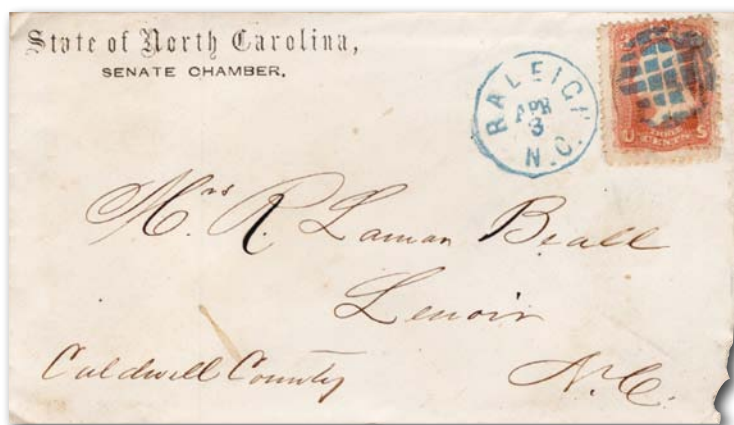 State of North Carolina,
SENATE CHAMBER.
RALEIGH
APR
3
N.C.
U THREE S
CENTS
Mrs R. Lamar Beall
Lenoir
Caldwell County N.C.